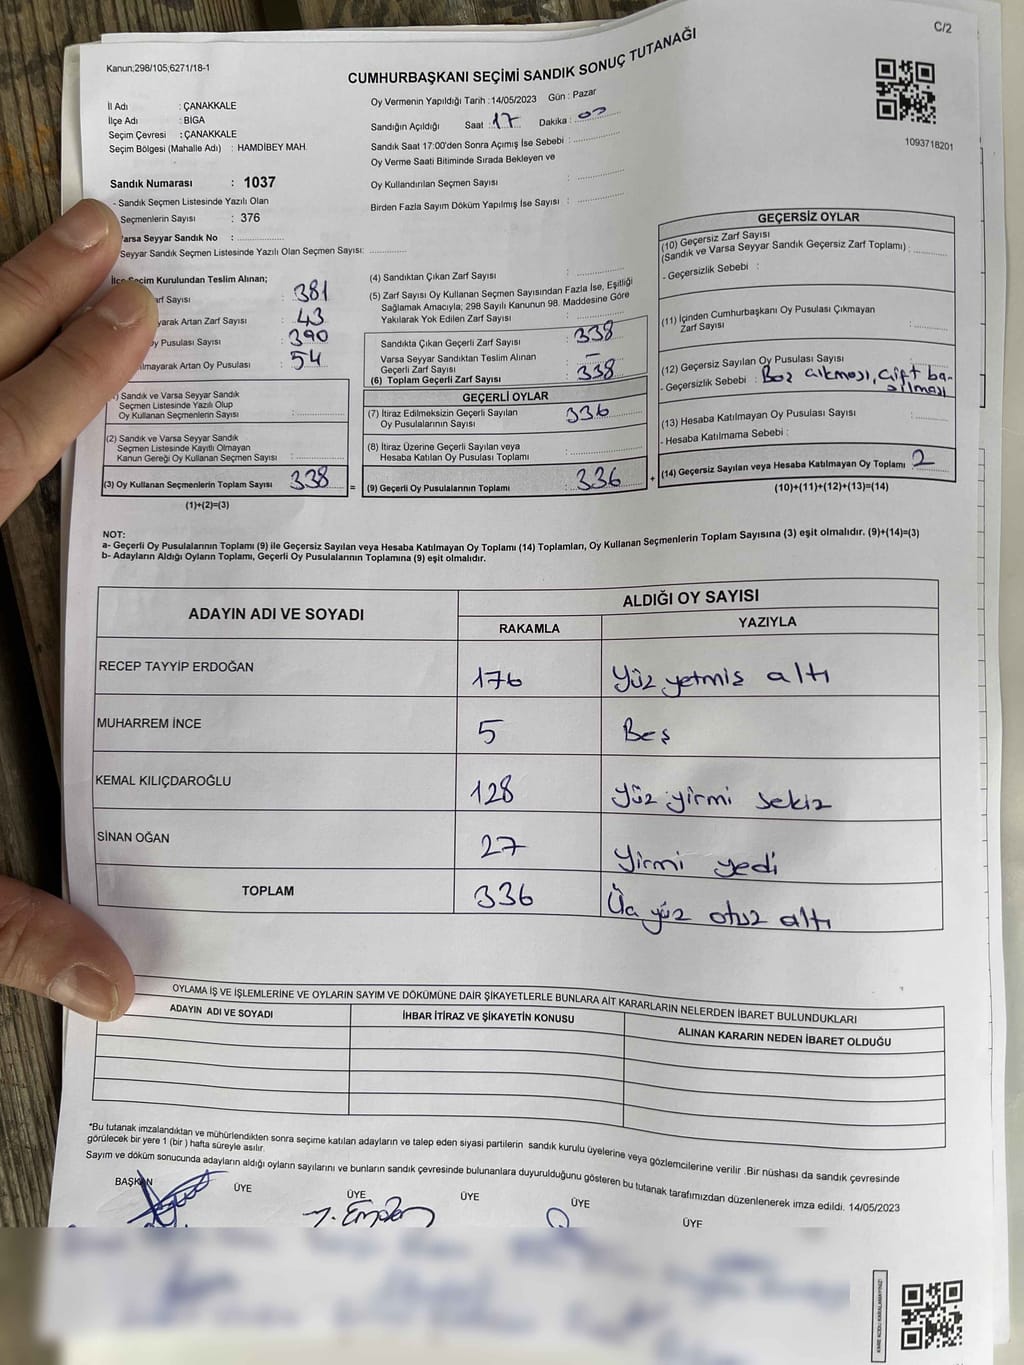 C/2
Kanun;298/105;6271/18-1
CUMHURBAŞKANI SEÇİMİ SANDIK SONUÇ TUTANAĞI
İl Adı : ÇANAKKALE
İlçe Adı : BİGA
Seçim Çevresi : ÇANAKKALE
Seçim Bölgesi (Mahalle Adı) : HAMDİBEY MAH.
Sandık Numarası : 1037
- Sandık Seçmen Listesinde Yazılı Olan
Seçmenlerin Sayısı : 376
Varsa Seyyar Sandık No :
Seyyar Sandık Seçmen Listesinde Yazılı Olan Seçmen Sayısı:
Oy Vermenin Yapıldığı Tarih : 14/05/2023 Gün : Pazar
Sandığın Açıldığı Saat : 17 Dakika : 00
Sandık Saat 17:00'den Sonra Açımış İse Sebebi :
Oy Verme Saati Bitiminde Sırada Bekleyen ve
Oy Kullandırılan Seçmen Sayısı :
Birden Fazla Sayım Döküm Yapılmış İse Sayısı :
1093718201
İlçe Seçim Kurulundan Teslim Alınan;
arf Sayısı : 381
yarak Artan Zarf Sayısı : 43
oy Pusulası Sayısı : 390
ılmayarak Artan Oy Pusulası : 54
(1) Sandık ve Varsa Seyyar Sandık
Seçmen Listesinde Yazılı Olup
Oy Kullanan Seçmenlerin Sayısı :
(2) Sandık ve Varsa Seyyar Sandık
Seçmen Listesinde Kayıtlı Olmayan
Kanun Gereği Oy Kullanan Seçmen Sayısı :
(3) Oy Kullanan Seçmenlerin Toplam Sayısı 338 =
(1)+(2)=(3)
(4) Sandıktan Çıkan Zarf Sayısı :
(5) Zarf Sayısı Oy Kullanan Seçmen Sayısından Fazla İse, Eşitliği
Sağlamak Amacıyla; 298 Sayılı Kanunun 98. Maddesine Göre
Yakılarak Yok Edilen Zarf Sayısı :
Sandıkta Çıkan Geçerli Zarf Sayısı : 338
Varsa Seyyar Sandıktan Teslim Alınan
Geçerli Zarf Sayısı : –
(6) Toplam Geçerli Zarf Sayısı : 338
GEÇERLİ OYLAR
(7) İtiraz Edilmeksizin Geçerli Sayılan
Oy Pusulalarının Sayısı : 336
(8) İtiraz Üzerine Geçerli Sayılan veya
Hesaba Katılan Oy Pusulası Toplamı :
(9) Geçerli Oy Pusulalarının Toplamı : 336 +
GEÇERSİZ OYLAR
(10) Geçersiz Zarf Sayısı
(Sandık ve Varsa Seyyar Sandık Geçersiz Zarf Toplamı) :
- Geçersizlik Sebebi :
(11) İçinden Cumhurbaşkanı Oy Pusulası Çıkmayan
Zarf Sayısı :
(12) Geçersiz Sayılan Oy Pusulası Sayısı :
- Geçersizlik Sebebi : Boz çıkması, çift ba-
sılması
(13) Hesaba Katılmayan Oy Pusulası Sayısı :
- Hesaba Katılmama Sebebi :
(14) Geçersiz Sayılan veya Hesaba Katılmayan Oy Toplamı : 2
(10)+(11)+(12)+(13)=(14)
NOT:
a- Geçerli Oy Pusulalarının Toplamı (9) ile Geçersiz Sayılan veya Hesaba Katılmayan Oy Toplamı (14) Toplamları, Oy Kullanan Seçmenlerin Toplam Sayısına (3) eşit olmalıdır. (9)+(14)=(3)
b- Adayların Aldığı Oyların Toplamı, Geçerli Oy Pusulalarının Toplamına (9) eşit olmalıdır.
ADAYIN ADI VE SOYADI ALDIĞI OY SAYISI
RAKAMLA YAZIYLA
RECEP TAYYİP ERDOĞAN 176 Yüz yetmiş altı
MUHARREM İNCE 5 Beş
KEMAL KILIÇDAROĞLU 128 Yüz yirmi sekiz
SİNAN OĞAN 27 Yirmi yedi
TOPLAM 336 Üç yüz otuz altı
OYLAMA İŞ VE İŞLEMLERİNE VE OYLARIN SAYIM VE DÖKÜMÜNE DAİR ŞİKAYETLERLE BUNLARA AİT KARARLARIN NELERDEN İBARET BULUNDUKLARI
ADAYIN ADI VE SOYADI İHBAR İTİRAZ VE ŞİKAYETİN KONUSU ALINAN KARARIN NEDEN İBARET OLDUĞU
*Bu tutanak imzalandıktan ve mühürlendikten sonra seçime katılan adayların ve talep eden siyasi partilerin sandık kurulu üyelerine veya gözlemcilerine verilir .Bir nüshası da sandık çevresinde
görülecek bir yere 1 (bir ) hafta süreyle asılır.
Sayım ve döküm sonucunda adayların aldığı oyların sayılarını ve bunların sandık çevresinde bulunanlara duyurulduğunu gösteren bu tutanak tarafımızdan düzenlenerek imza edildi. 14/05/2023
BAŞKAN ÜYE ÜYE ÜYE ÜYE ÜYE
KARE KODU KARALAMAYINIZ!